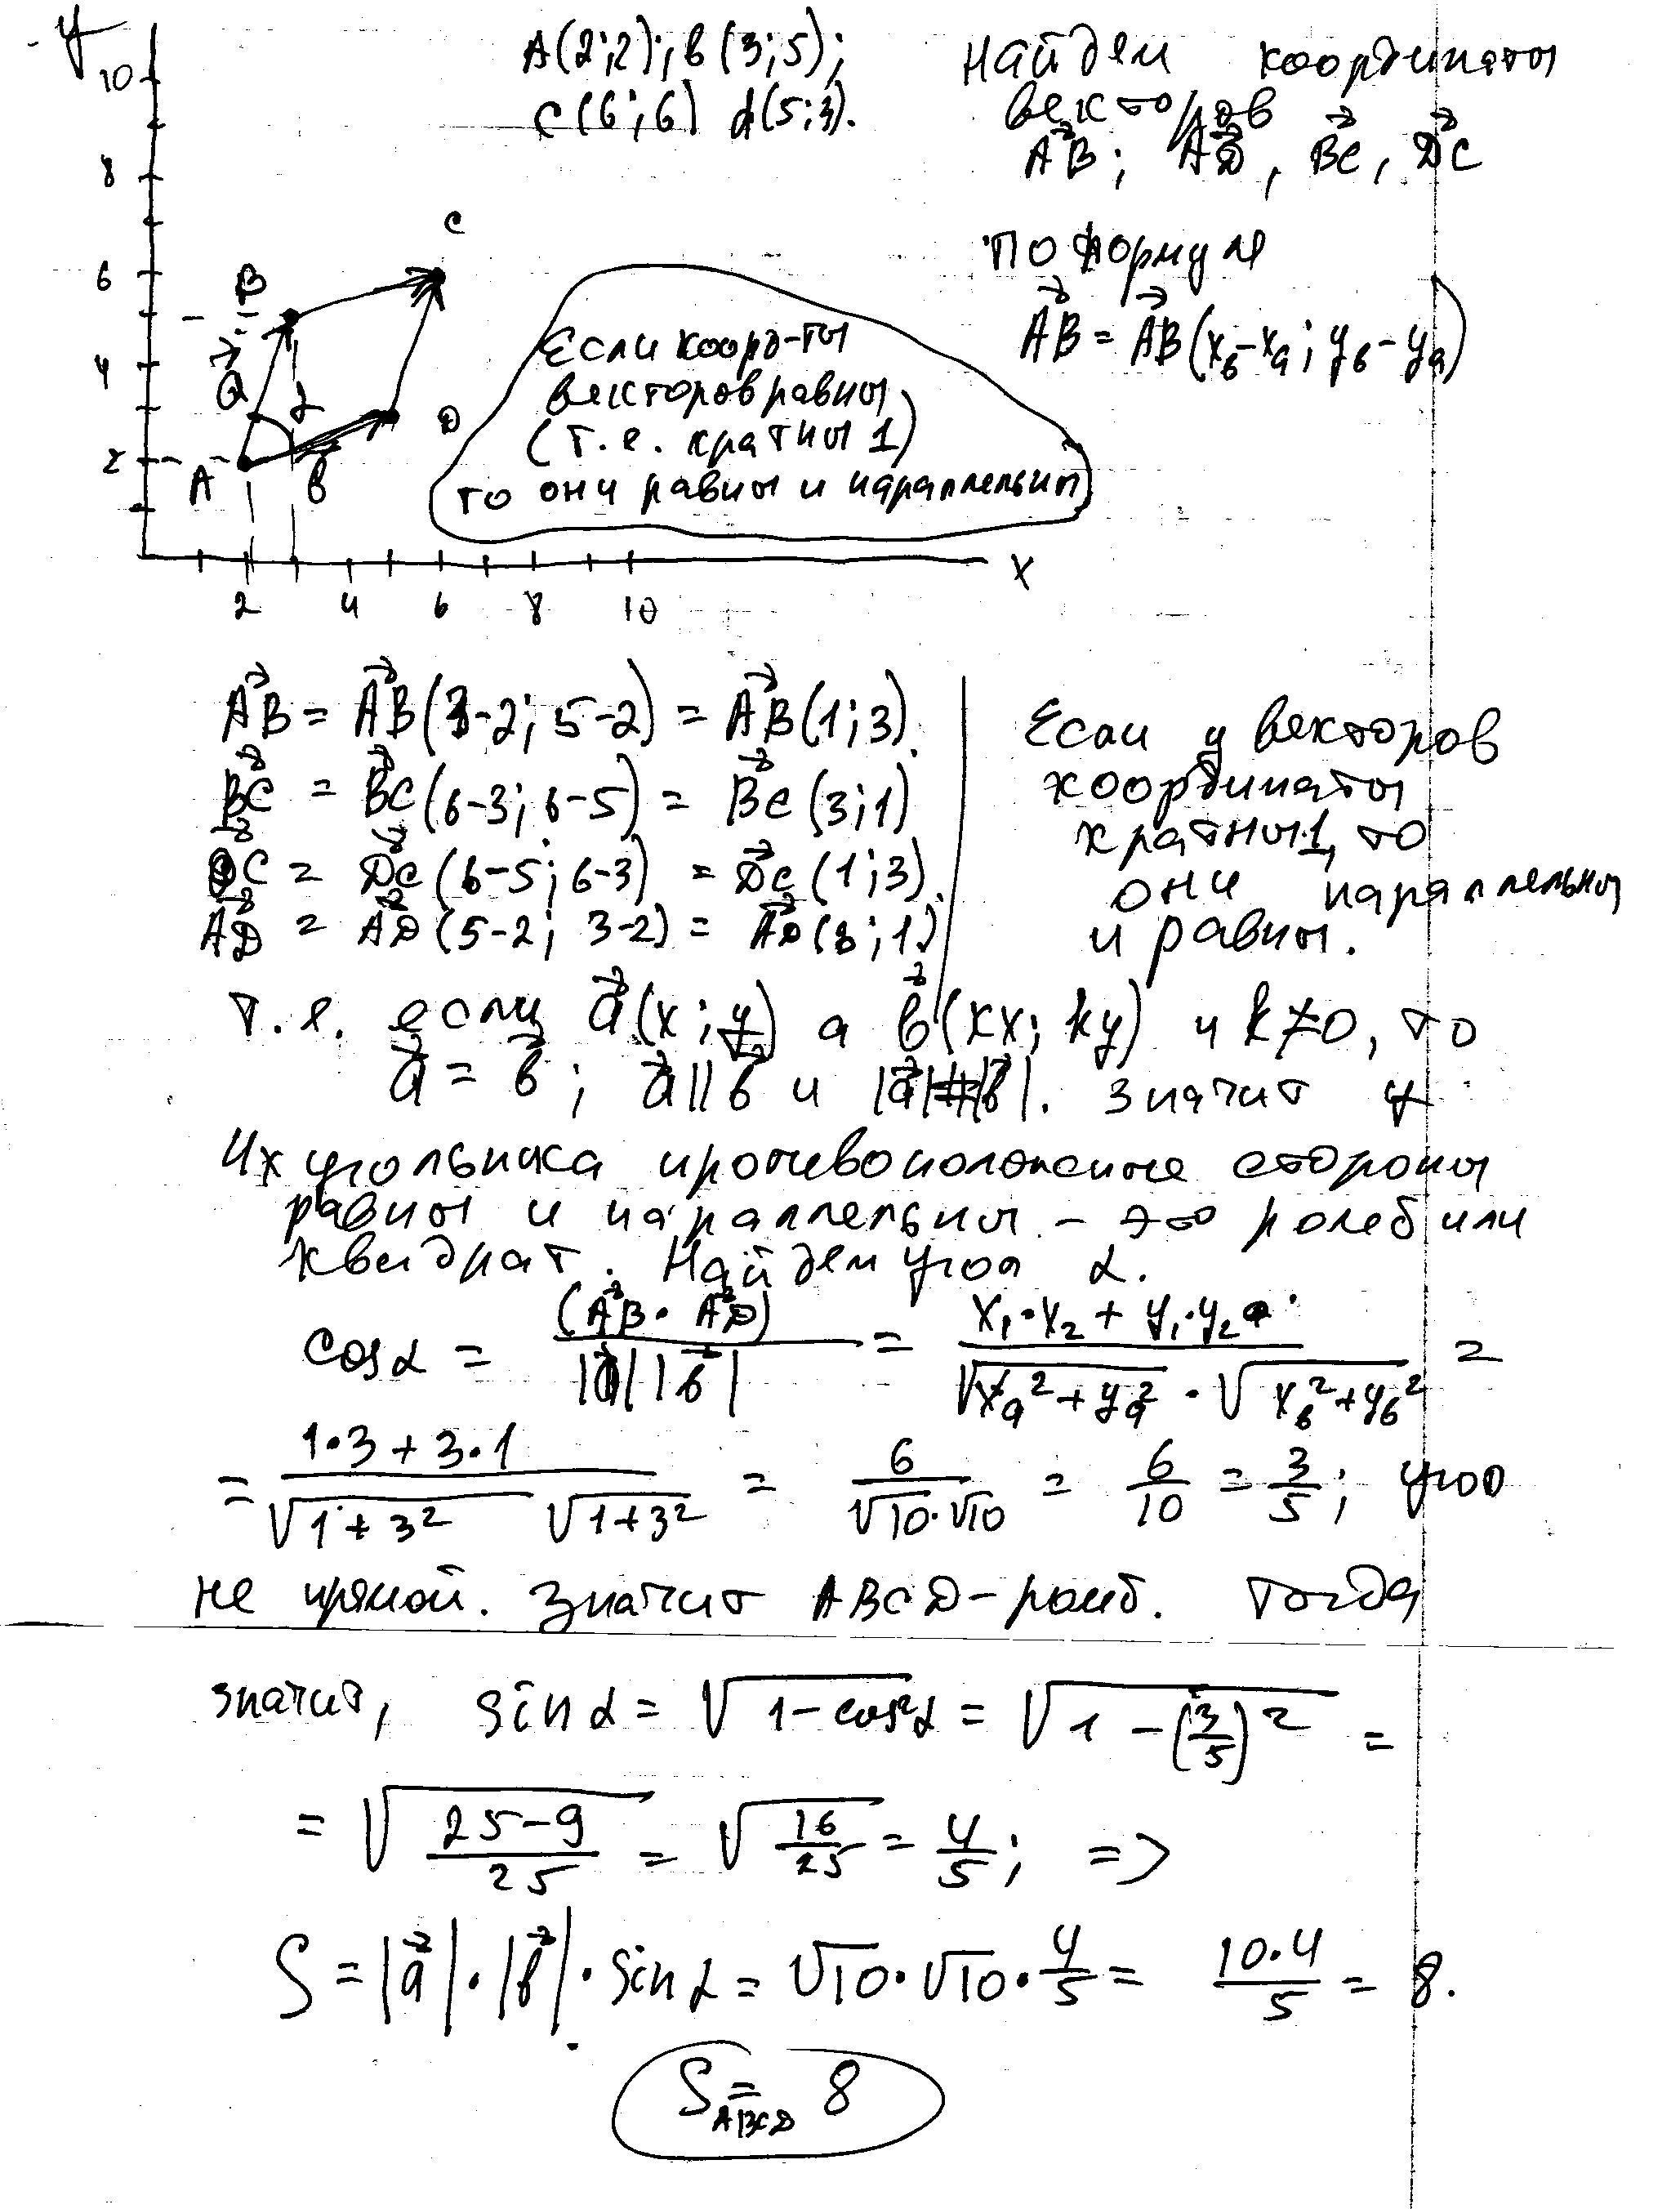 y
A(2;2); в(3;5);
c(6;6) d(5;3).
Найдем координаты
векторов
AB; AD, BC, DC
По формуле
AB = AB(xв-xa; yв-ya)
10
8
6
4
2
C
B
a
α
D
A
в
Если коорд-ты
векторов равны
(т.е. кратны 1)
то они равны и параллельны
2 4 6 8 10
x
AB = AB(3-2; 5-2) = AB(1;3).
BC = BC(6-3; 6-5) = BC(3;1)
DC = DC(6-5; 6-3) = DC(1;3).
AD = AD(5-2; 3-2) = AD(3;1)
Если у векторов
координаты
кратны 1, то
они параллельны
и равны.
т.е. если a(x;y) а в(kx; ky) и k≠0, то
a = в; a||в и |a|=|в|. Значит у
4х угольника противоположные стороны
равны и параллельны - это ромб или
квадрат. Найдем угол α.
cosα = (AB·AD) / |a||в| = x₁·x₂ + y₁·y₂ / √xa²+ya² · √xв²+yв² =
= 1·3+3·1 / √1+3² √1+3² = 6 / √10·√10 = 6/10 = 3/5; угол
не прямой. Значит ABCD-ромб. Тогда
значит, sinα = √1-cos²α = √1-(3/5)² =
= √25-9/25 = √16/25 = 4/5; =>
S = |a|·|в|·sinα = √10·√10·4/5 = 10·4/5 = 8.
S ABCD = 8